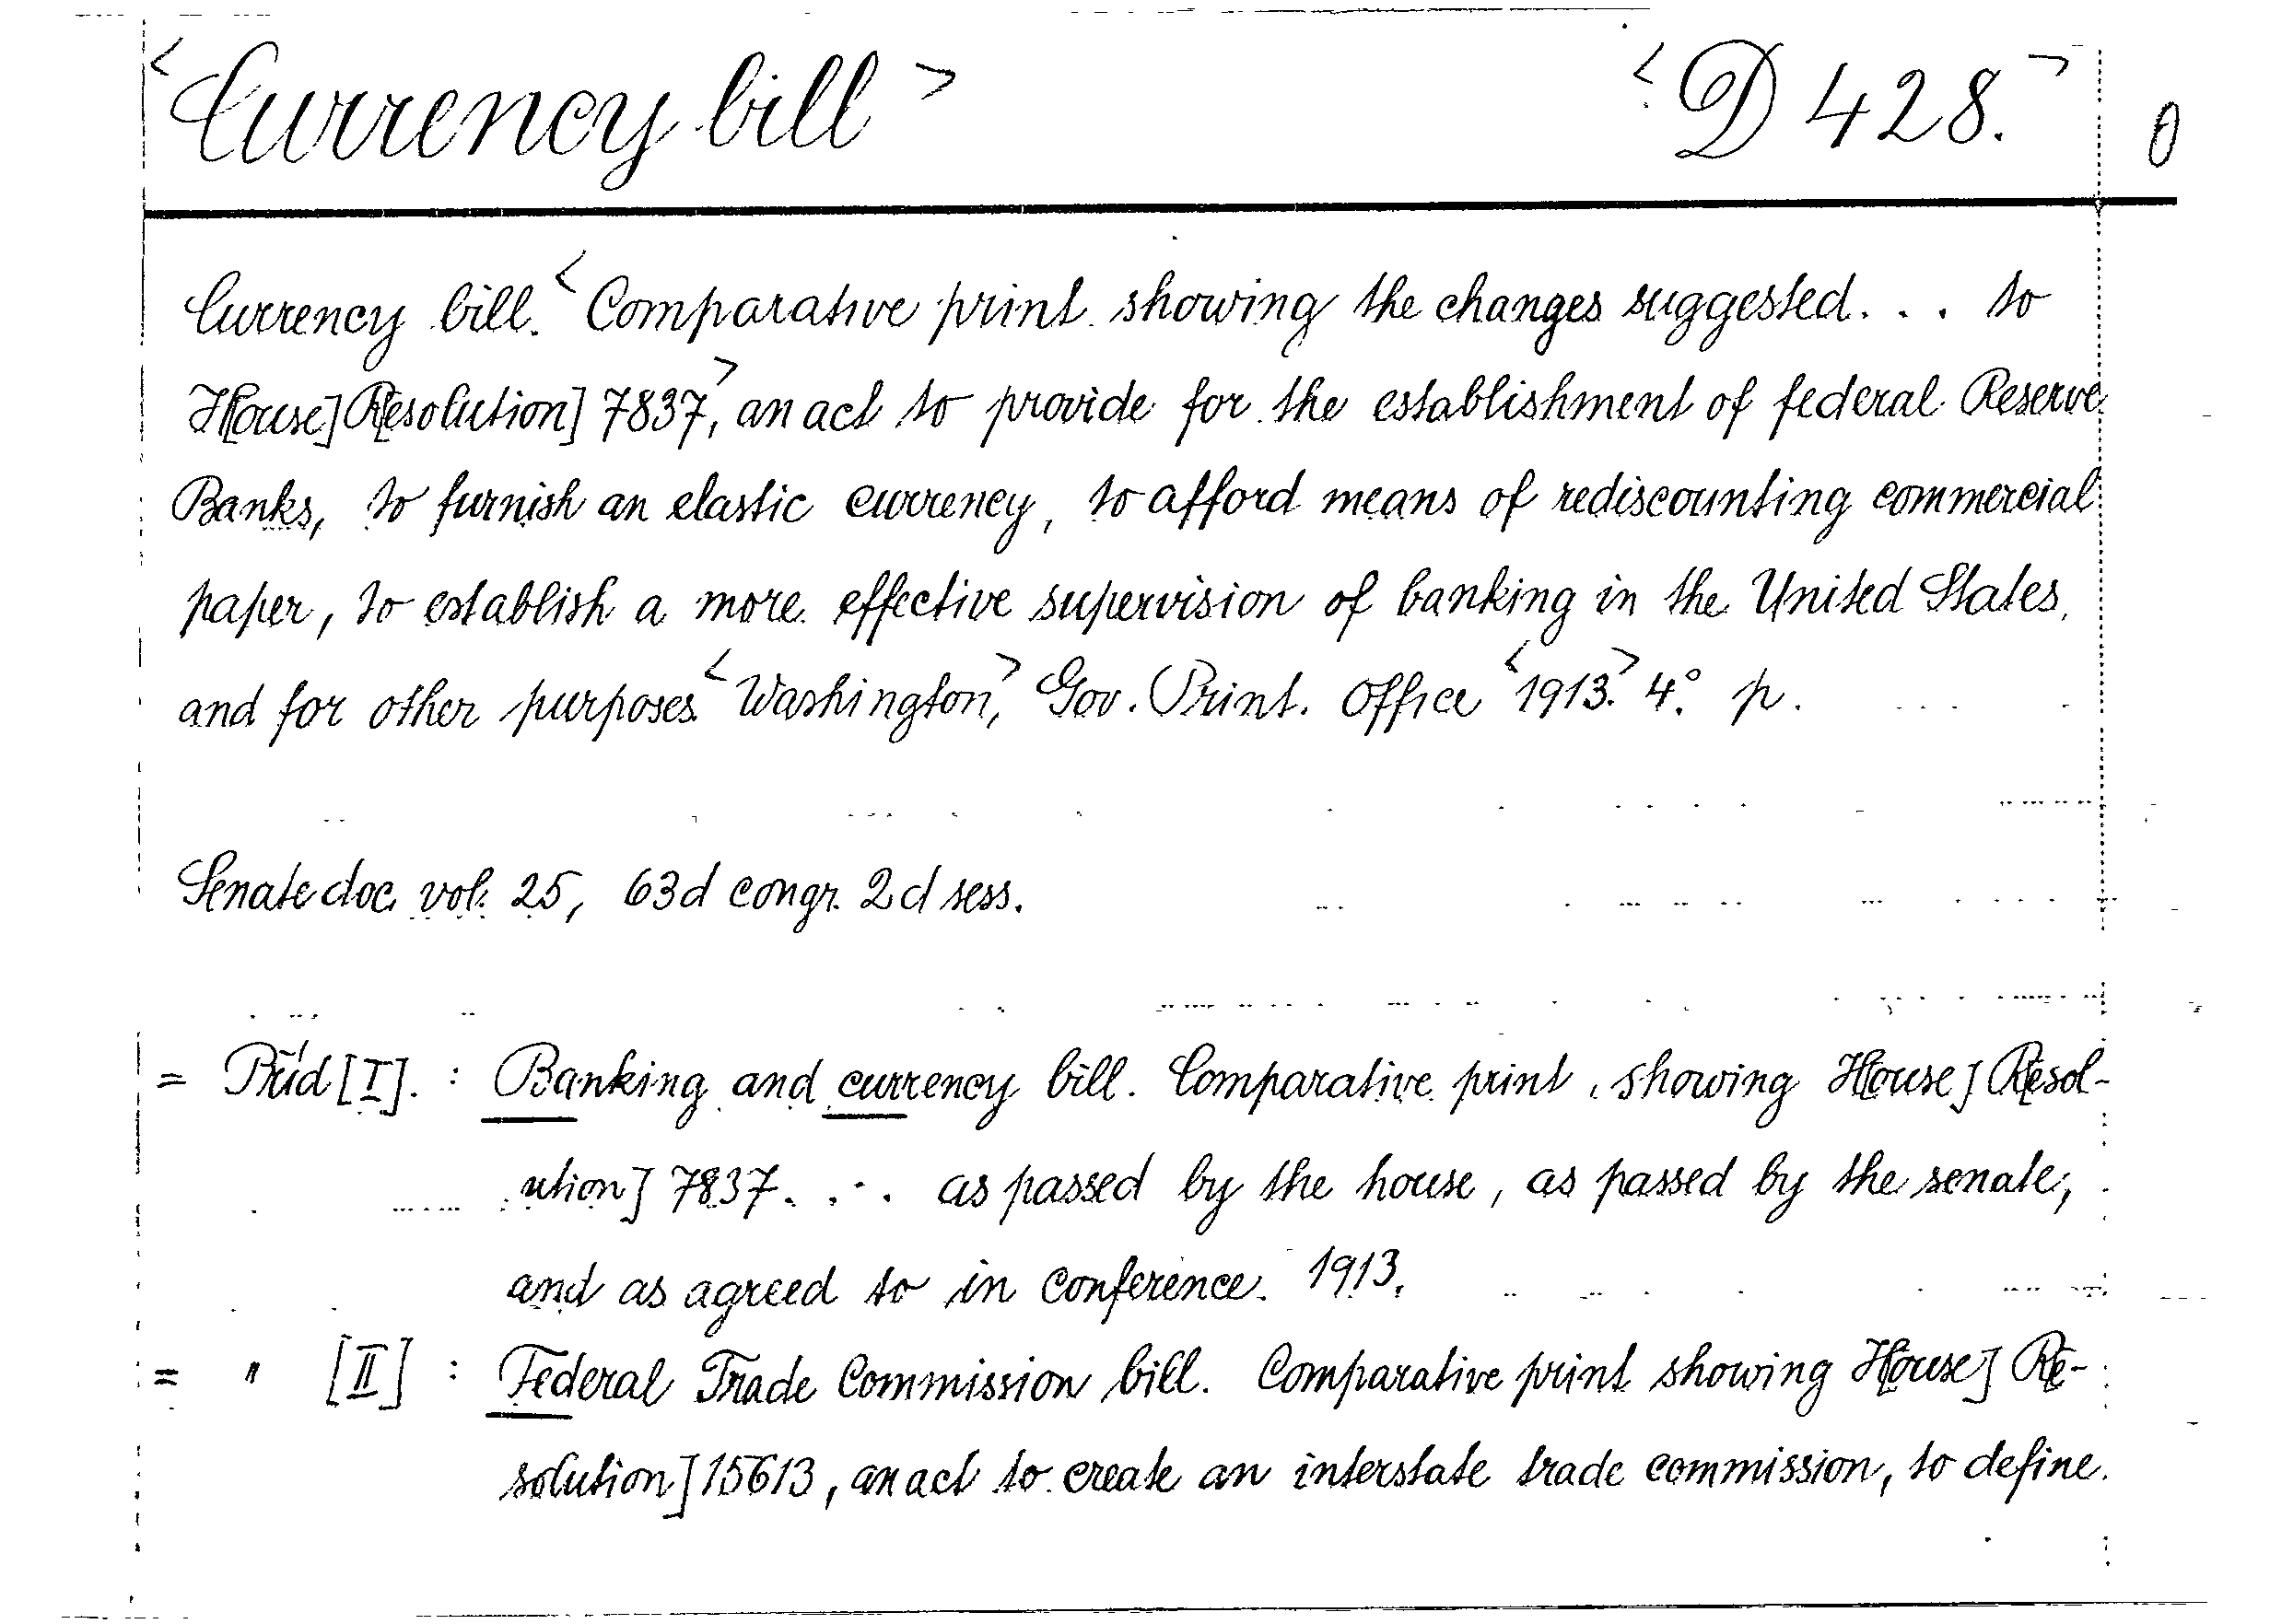 <Currency bill> <D 428.> 0
Currency bill. <Comparative print showing the changes suggested . . . to
H[ouse] R[esolution] 7837>, an act to provide for the establishment of federal Reserve
Banks, to furnish an elastic currency, to afford means of rediscounting commercial
paper, to establish a more effective supervision of banking in the United States,
and for other purposes. <Washington,> Gov. Print. Office <1913.> 4° p.
Senate doc. vol. 25, 63d congr. 2d sess.
= [I]. : Banking and currency bill. Comparative print, showing H[ouse] R[esol-
ution] 7837. . . . as passed by the house, as passed by the senate,
and as agreed to in conference. 1913.
= " [II] : Federal Trade Commission bill. Comparative print showing H[ouse] R[e-
solution] 15613, an act to create an interstate trade commission, to define